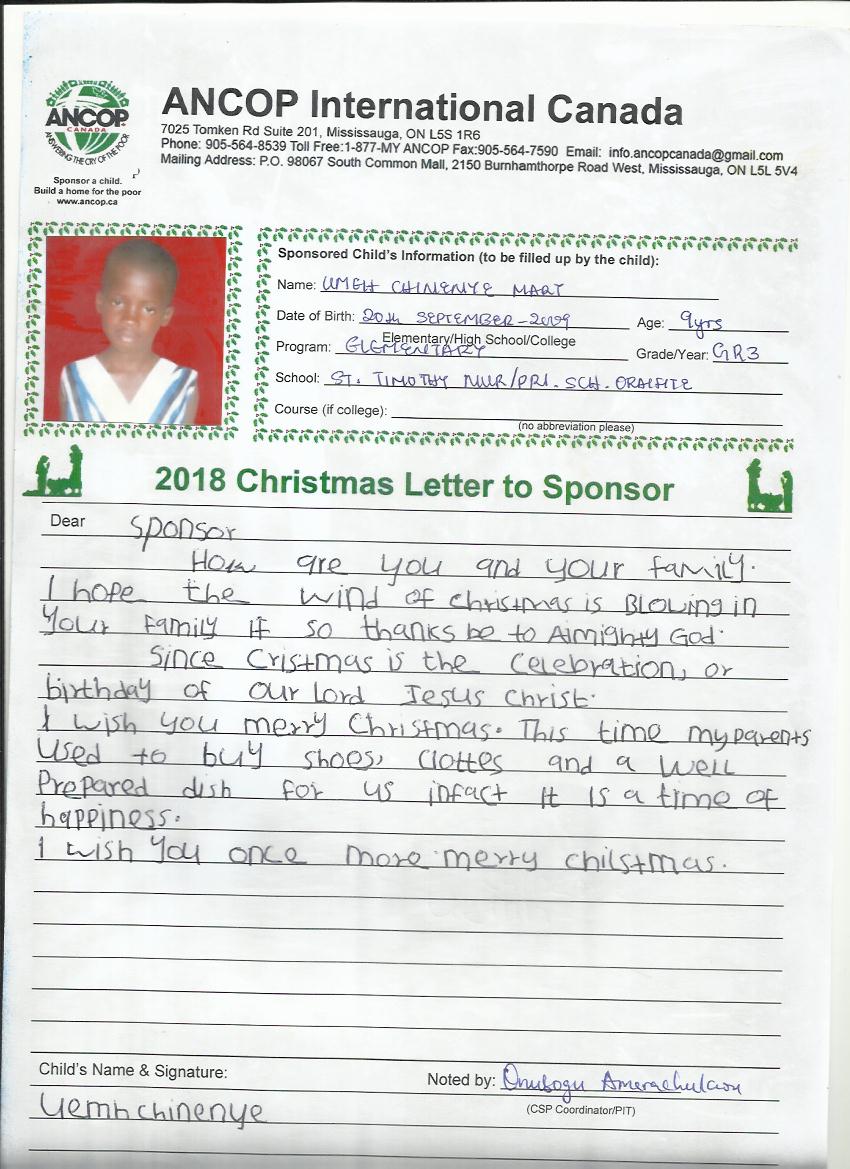 ANCOP
CANADA
ANSWERING THE CRY OF THE POOR
Sponsor a child.
Build a home for the poor
www.ancop.ca
ANCOP International Canada
7025 Tomken Rd Suite 201, Mississauga, ON L5S 1R6
Phone: 905-564-8539 Toll Free:1-877-MY ANCOP Fax:905-564-7590 Email: info.ancopcanada@gmail.com
Mailing Address: P.O. 98067 South Common Mall, 2150 Burnhamthorpe Road West, Mississauga, ON L5L 5V4
Sponsored Child's Information (to be filled up by the child):
Name: UMEH CHINENYE MARY
Date of Birth: 20th SEPTEMBER-2009 Age: 9yrs
Elementary/High School/College
Program: ELEMENTARY Grade/Year: GR3
School: ST. TIMOTHY NUR/PRI. SCH. ORAIFITE
Course (if college):
(no abbreviation please)
2018 Christmas Letter to Sponsor
Dear sponsor
How are you and your family.
I hope the wind of christmas is Blowing in
your family if so thanks be to Almighty God.
Since Cristmas is the celebration, or
birthday of our lord Jesus christ.
I wish you merry Christmas. This time my parents
used to buy shoes, clottes and a well
Prepared dish for us infact it is a time of
happiness.
I wish you once more merry chilstmas.
Child's Name & Signature:
Noted by: Onubogu
(CSP Coordinator/PIT)
Uemh chinenye